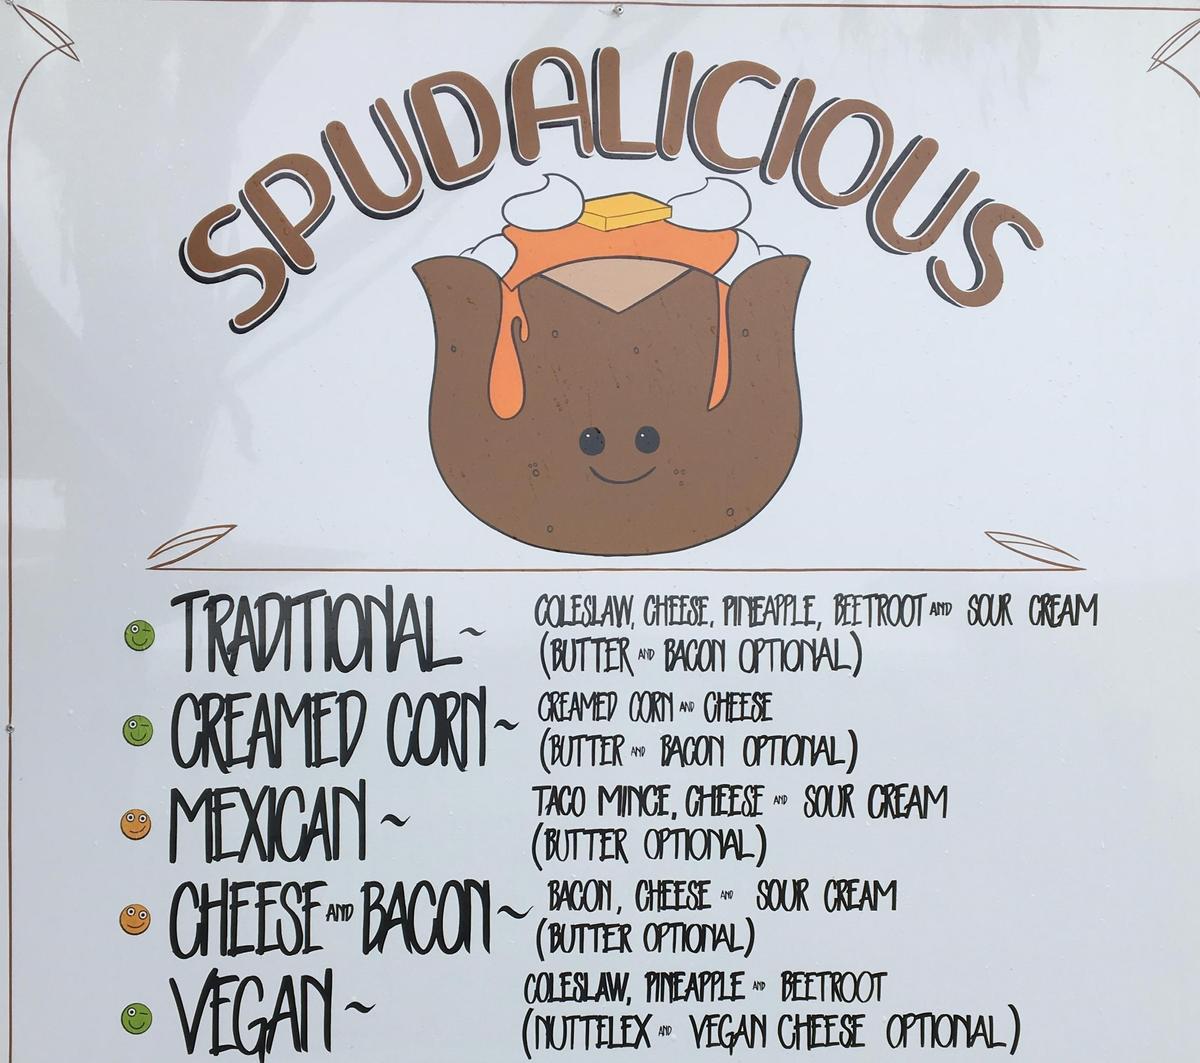 SPUDALICIOUS
TRADITIONAL ~ COLESLAW, CHEESE, PINEAPPLE, BEETROOT AND SOUR CREAM
(BUTTER AND BACON OPTIONAL)
CREAMED CORN ~ CREAMED CORN AND CHEESE
(BUTTER AND BACON OPTIONAL)
MEXICAN ~ TACO MINCE, CHEESE AND SOUR CREAM
(BUTTER OPTIONAL)
CHEESE AND BACON ~ BACON, CHEESE AND SOUR CREAM
(BUTTER OPTIONAL)
VEGAN ~ COLESLAW, PINEAPPLE AND BEETROOT
(NUTTELEX AND VEGAN CHEESE OPTIONAL)